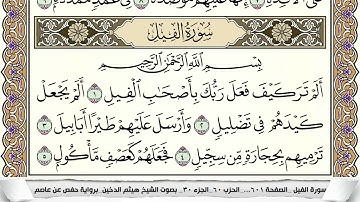 عَلَى ٱلْأَفْـِٔدَةِ ٧ إِنَّهَا عَلَيْهِم مُّؤْصَدَةٌ ٨ فِى عَمَدٍ مُّمَدَّدَةٍۭ ٩
سُورَةُ الفِيلِ
بِسْمِ ٱللَّهِ ٱلرَّحْمَٰنِ ٱلرَّحِيمِ
أَلَمْ تَرَ كَيْفَ فَعَلَ رَبُّكَ بِأَصْحَٰبِ ٱلْفِيلِ ١ أَلَمْ يَجْعَلْ
كَيْدَهُمْ فِى تَضْلِيلٍ ٢ وَأَرْسَلَ عَلَيْهِمْ طَيْرًا أَبَابِيلَ ٣
تَرْمِيهِم بِحِجَارَةٍ مِّن سِجِّيلٍ ٤ فَجَعَلَهُمْ كَعَصْفٍ مَّأْكُولٍۭ ٥
سورة الفيل _الصفحة ٦٠١_... الحزب ٦٠_الجزء ٣٠_ بصوت الشيخ هيثم الدخين_ برواية حفص عن عاصم